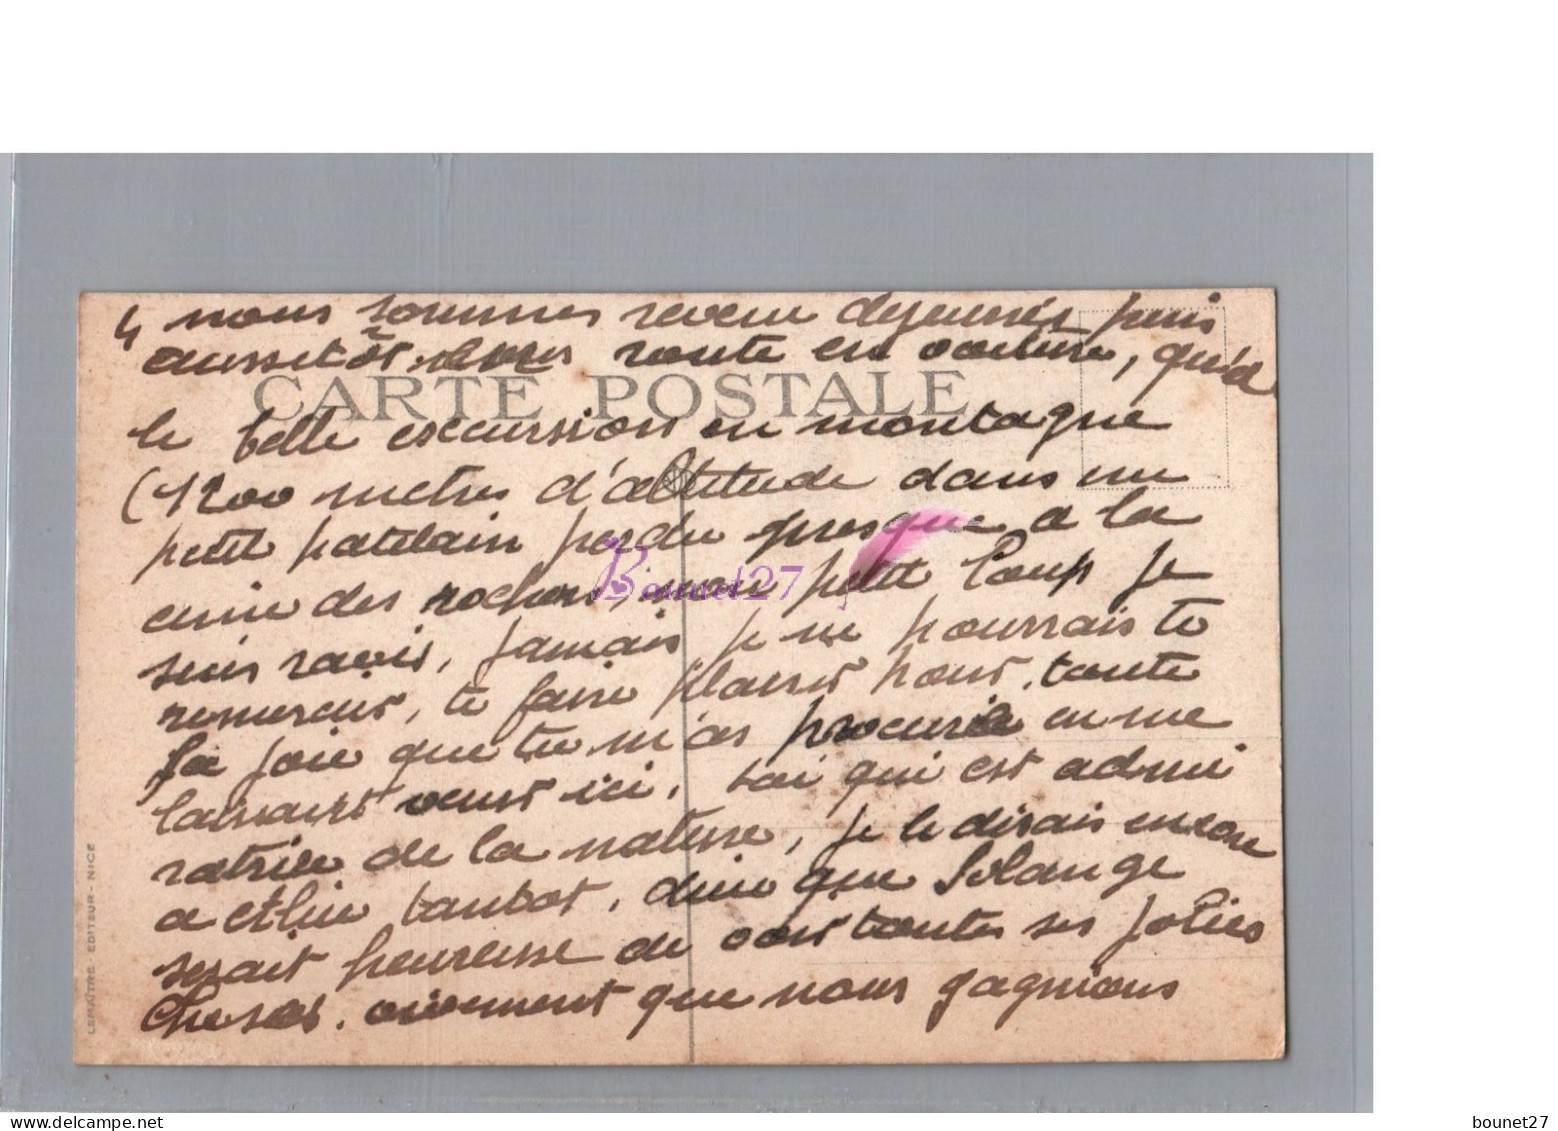 4 nous sommes revenu dejeuner puis
aussitôt route en voiture, qu'el
CARTE POSTALE
le belle excursion en montagne
(1200 metres d'altitude dans un
petit patelain perdu presque a la
cime des rochers, mon petit Loup je
Bounet27
suis ravis, jamais je ne pourrais te
remercier, te faire plaisir pour toute
la joie que tu m'as procuré en me
laissant venir ici, toi qui est admi
ratrice de la nature, je le disais encore
a tantot, dire que Solange
serait heureuse de voir toutes ses jolies
choses. vivement que nous gagnions
LEMAITRE EDITEUR - NICE
bounet27